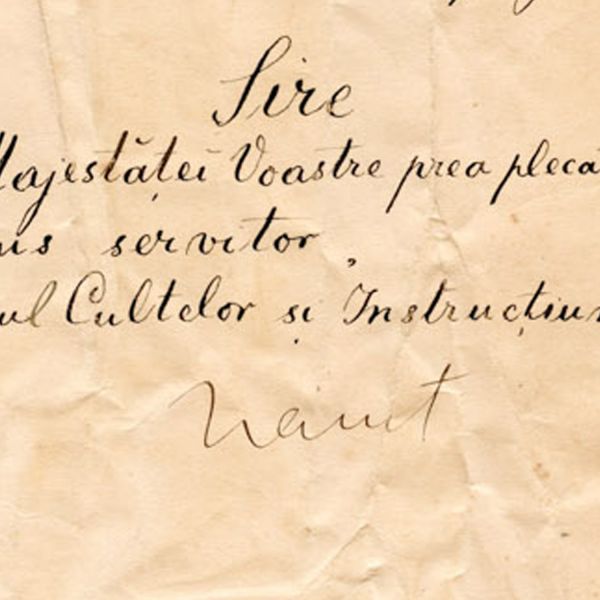 Sire
Majestăței Voastre prea pleca
us servitor,
ul Cultelor și Instrucțiun